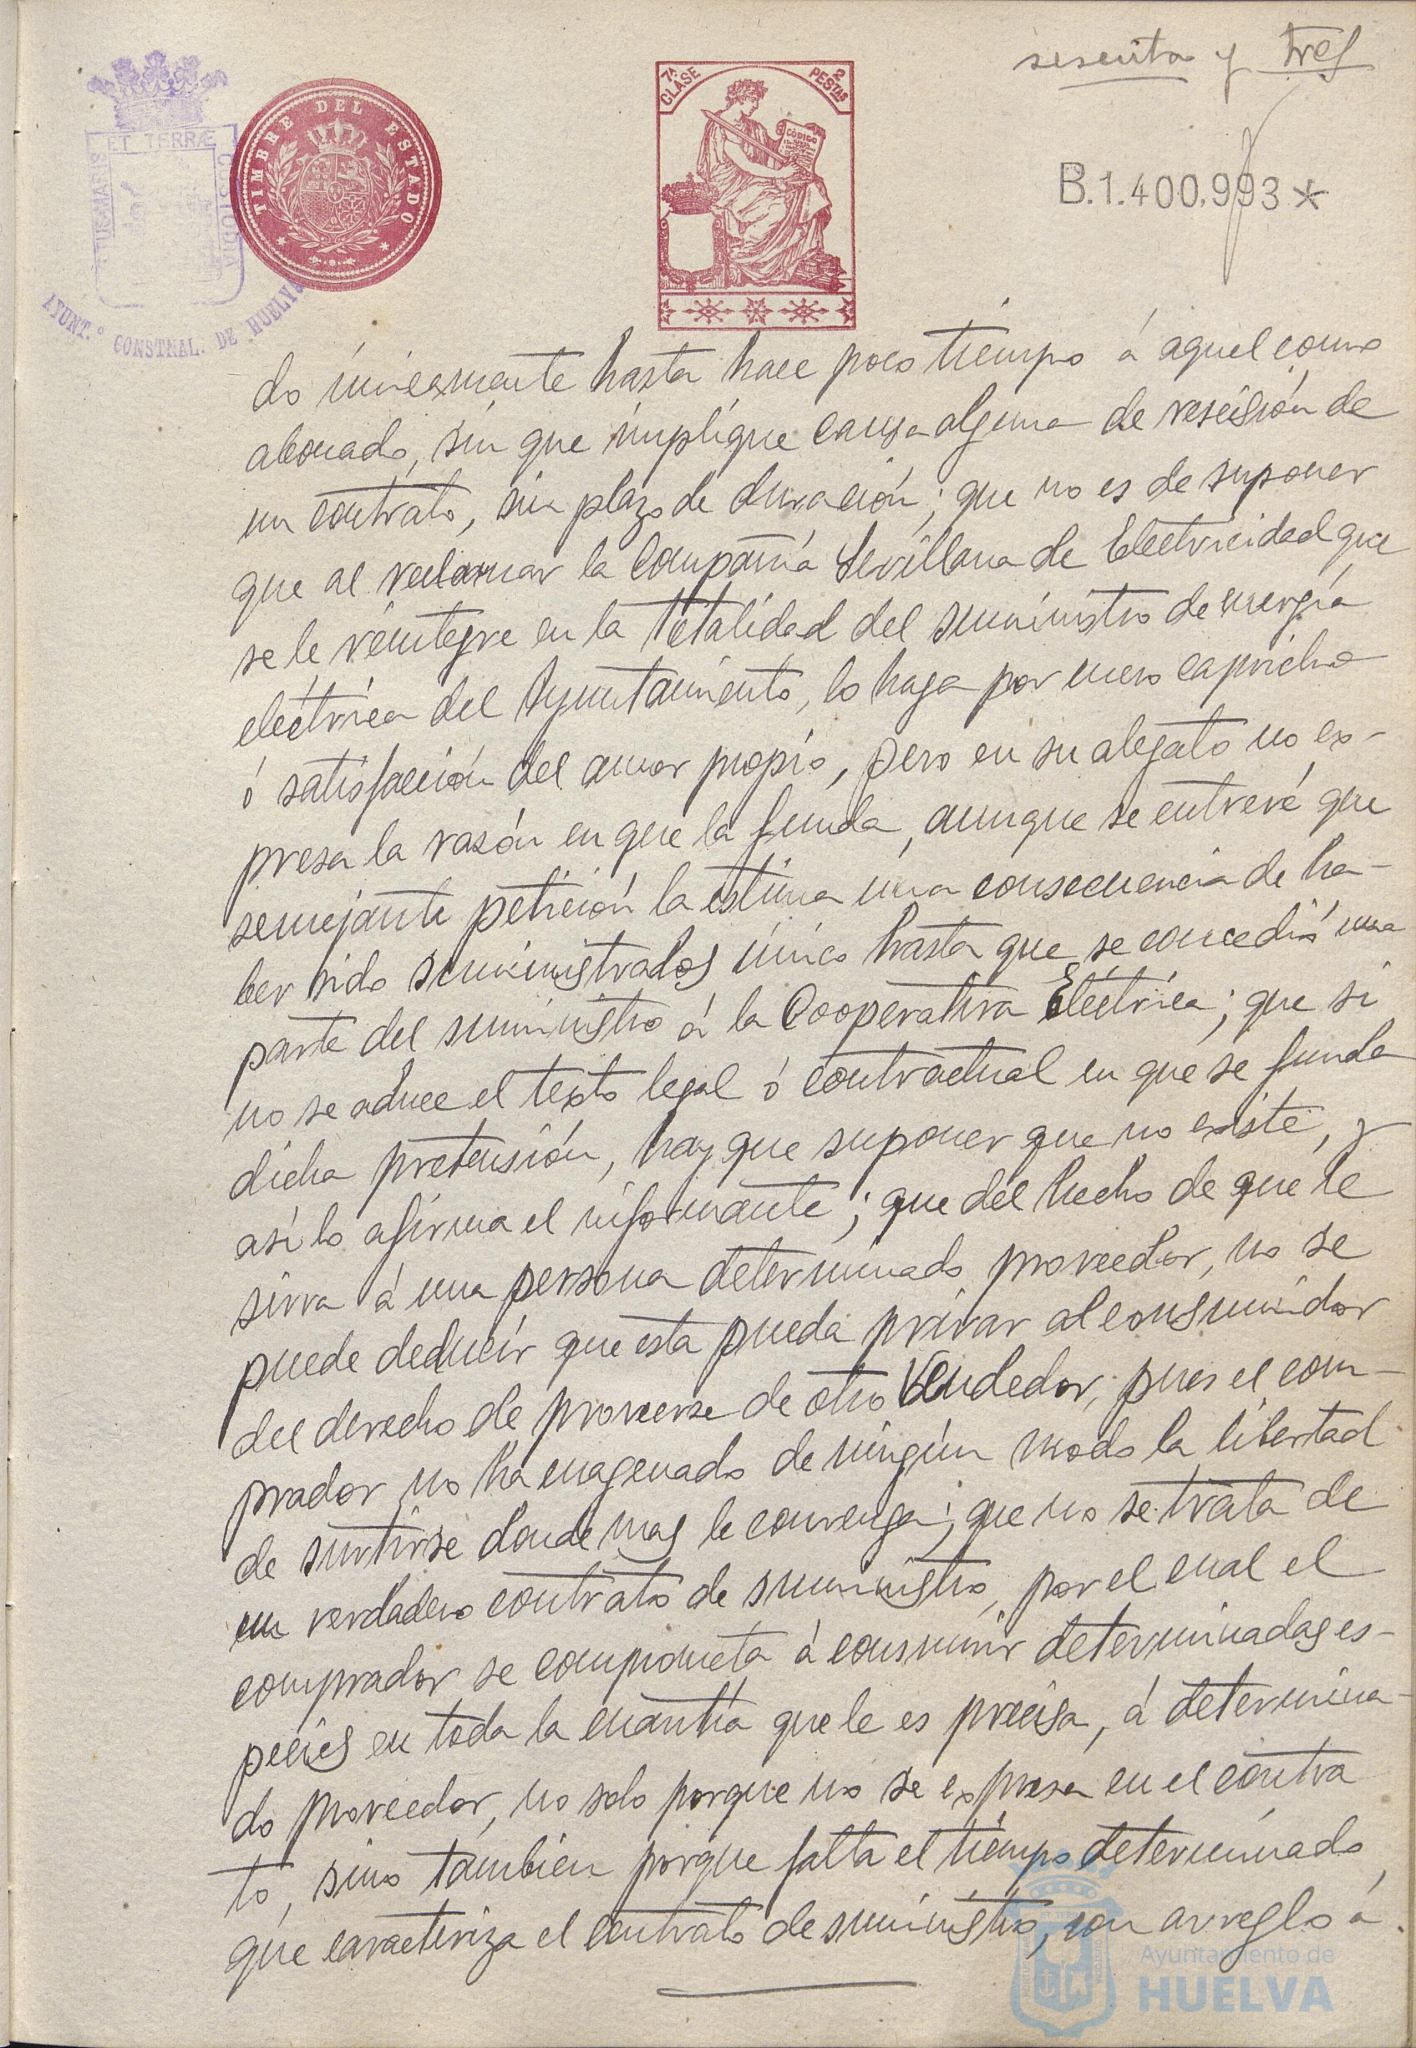 sesenta y tres
PORTUS MARIS ET TERRÆ CUSTODIA
AYUNT.º CONSTNAL. DE HUELVA
TIMBRE DEL ESTADO
7ª CLASE
2 PESTAS
CODIGO
B.1.400.993*
do únicamente hasta hace poco tiempo á aquel como
abonado, sin que implique causa alguna de rescisión de
un contrato, sin plazo de duración; que no es de suponer
que al reclamar la Compañía Sevillana de Electricidad que
se le reintegre en la totalidad del suministro de energía
eléctrica del Ayuntamiento, lo haga por mero capricho
ó satisfacción del amor propio, pero en su alegato no ex-
presa la razón en que la funda, aunque se entrevé que
semejante petición la estima una consecuencia de ha-
ber sido suministrados único hasta que se concedió una
parte del suministro á la Cooperativa Eléctrica; que si
no se aduce el texto legal ó contractual en que se funda
dicha pretensión, hay que suponer que no existe, y
así lo afirma el informante; que del hecho de que le
sirva á una persona determinado proveedor, no se
puede deducir que esta pueda privar al consumidor
del derecho de proveerse de otro Vendedor, pues el com-
prador no ha enagenado de ningún modo la libertad
de surtirse donde mas le convenga; que no se trata de
un verdadero contrato de suministro, por el cual el
comprador se comprometa á consumir determinadas es-
pecies en toda la cuantía que le es precisa, á determina-
do proveedor, no solo porque no se expresa en el contra
to, sino también porque falta el tiempo determinado,
que caracteriza el contrato de suministro, con arreglo á
Ayuntamiento de
HUELVA